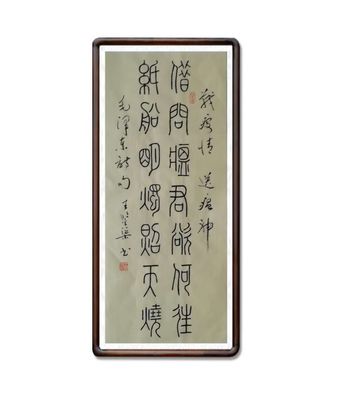 战疫情 送瘟神
借問瘟君欲何往
紙船明燭照天燒
毛澤東詩句 王
书